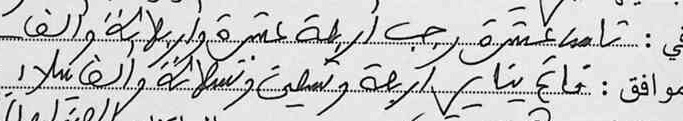 في : ثامن عشرة رجب أربعة عشرة وأربعمائة وألف
موافق : فاتح يناير أربعة وتسعين وتسعمائة وألف ميلادي